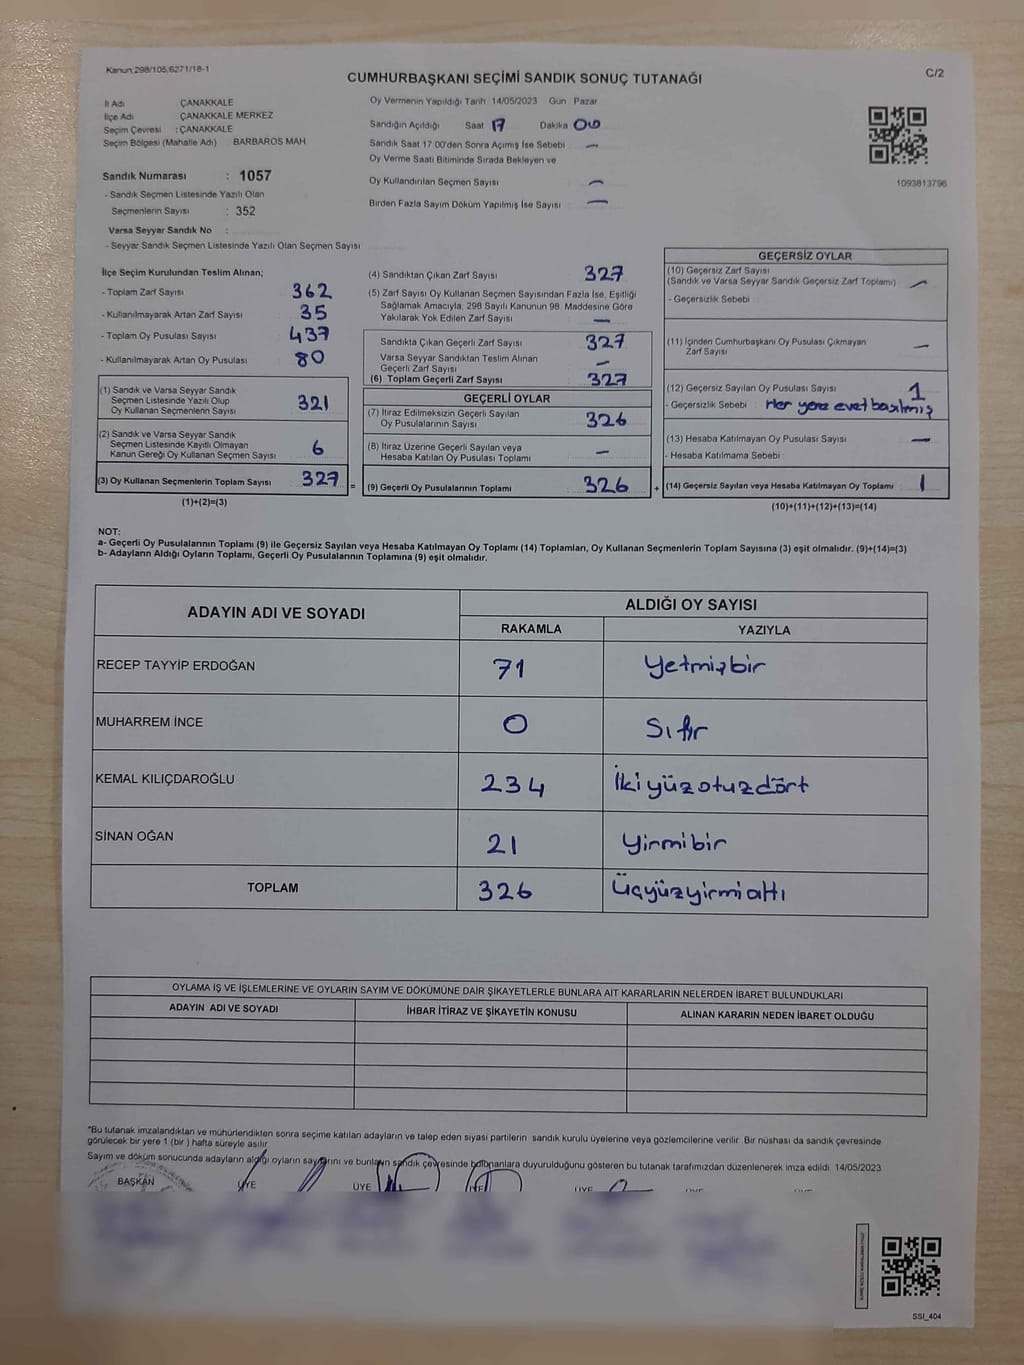 Kanun:298/105;6271/18-1
C/2
CUMHURBAŞKANI SEÇİMİ SANDIK SONUÇ TUTANAĞI
İl Adı ÇANAKKALE
İlçe Adı ÇANAKKALE MERKEZ
Seçim Çevresi : ÇANAKKALE
Seçim Bölgesi (Mahalle Adı) BARBAROS MAH
Sandık Numarası : 1057
- Sandık Seçmen Listesinde Yazılı Olan
Seçmenlerin Sayısı : 352
Varsa Seyyar Sandık No :
- Seyyar Sandık Seçmen Listesinde Yazılı Olan Seçmen Sayısı
Oy Vermenin Yapıldığı Tarih : 14/05/2023 Gün : Pazar
Sandığın Açıldığı Saat 17 Dakika 00
Sandık Saat 17.00'den Sonra Açımış İse Sebebi : —
Oy Verme Saati Bitiminde Sırada Bekleyen ve
Oy Kullandırılan Seçmen Sayısı —
Birden Fazla Sayım Döküm Yapılmış İse Sayısı —
1093813796
İlçe Seçim Kurulundan Teslim Alınan;
- Toplam Zarf Sayısı 362
- Kullanılmayarak Artan Zarf Sayısı 35
- Toplam Oy Pusulası Sayısı 437
- Kullanılmayarak Artan Oy Pusulası 80
(1) Sandık ve Varsa Seyyar Sandık
Seçmen Listesinde Yazılı Olup
Oy Kullanan Seçmenlerin Sayısı 321
(2) Sandık ve Varsa Seyyar Sandık
Seçmen Listesinde Kayıtlı Olmayan
Kanun Gereği Oy Kullanan Seçmen Sayısı 6
(3) Oy Kullanan Seçmenlerin Toplam Sayısı 327 =
(1)+(2)=(3)
(4) Sandıktan Çıkan Zarf Sayısı 327
(5) Zarf Sayısı Oy Kullanan Seçmen Sayısından Fazla İse, Eşitliği
Sağlamak Amacıyla; 298 Sayılı Kanunun 98. Maddesine Göre
Yakılarak Yok Edilen Zarf Sayısı —
Sandıkta Çıkan Geçerli Zarf Sayısı 327
Varsa Seyyar Sandıktan Teslim Alınan
Geçerli Zarf Sayısı —
(6) Toplam Geçerli Zarf Sayısı 327
GEÇERLİ OYLAR
(7) İtiraz Edilmeksizin Geçerli Sayılan
Oy Pusulalarının Sayısı 326
(8) İtiraz Üzerine Geçerli Sayılan veya
Hesaba Katılan Oy Pusulası Toplamı —
(9) Geçerli Oy Pusulalarının Toplamı 326 +
GEÇERSİZ OYLAR
(10) Geçersiz Zarf Sayısı
(Sandık ve Varsa Seyyar Sandık Geçersiz Zarf Toplamı) —
- Geçersizlik Sebebi :
(11) İçinden Cumhurbaşkanı Oy Pusulası Çıkmayan
Zarf Sayısı —
(12) Geçersiz Sayılan Oy Pusulası Sayısı 1
- Geçersizlik Sebebi : Her yere evet basılmış
(13) Hesaba Katılmayan Oy Pusulası Sayısı —
- Hesaba Katılmama Sebebi :
(14) Geçersiz Sayılan veya Hesaba Katılmayan Oy Toplamı 1
(10)+(11)+(12)+(13)=(14)
NOT:
a- Geçerli Oy Pusulalarının Toplamı (9) ile Geçersiz Sayılan veya Hesaba Katılmayan Oy Toplamı (14) Toplamları, Oy Kullanan Seçmenlerin Toplam Sayısına (3) eşit olmalıdır. (9)+(14)=(3)
b- Adayların Aldığı Oyların Toplamı, Geçerli Oy Pusulalarının Toplamına (9) eşit olmalıdır.
ADAYIN ADI VE SOYADI ALDIĞI OY SAYISI
RAKAMLA YAZIYLA
RECEP TAYYİP ERDOĞAN 71 Yetmişbir
MUHARREM İNCE 0 Sıfır
KEMAL KILIÇDAROĞLU 234 İkiyüzotuzdört
SİNAN OĞAN 21 Yirmibir
TOPLAM 326 Üçyüzyirmialtı
OYLAMA İŞ VE İŞLEMLERİNE VE OYLARIN SAYIM VE DÖKÜMÜNE DAİR ŞİKAYETLERLE BUNLARA AİT KARARLARIN NELERDEN İBARET BULUNDUKLARI
ADAYIN ADI VE SOYADI İHBAR İTİRAZ VE ŞİKAYETİN KONUSU ALINAN KARARIN NEDEN İBARET OLDUĞU
*Bu tutanak imzalandıktan ve mühürlendikten sonra seçime katılan adayların ve talep eden siyasi partilerin sandık kurulu üyelerine veya gözlemcilerine verilir. Bir nüshası da sandık çevresinde
görülecek bir yere 1 (bir ) hafta süreyle asılır.
Sayım ve döküm sonucunda adayların aldığı oyların sayılarını ve bunların sandık çevresinde bulunanlara duyurulduğunu gösteren bu tutanak tarafımızdan düzenlenerek imza edildi. 14/05/2023
BAŞKAN ÜYE ÜYE ÜYE ÜYE
SSI_404